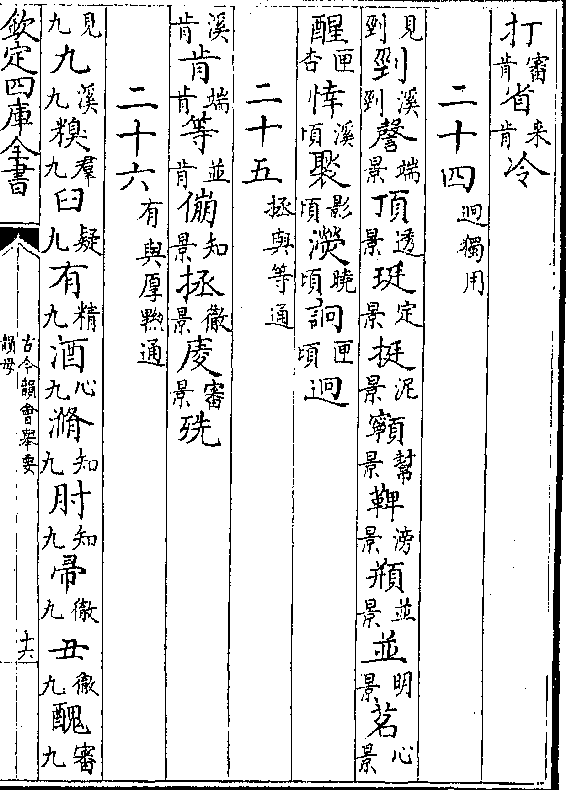 打審肯省来肯冷
二十四迥獨用
見剄剄溪剄謦端景頂透景珽定景挺泥景幫景鞞滂景頩並景並明景茗心景
醒匣杏悻溪頃褧影頃濙曉頃詗匣頃迥
二十五拯與等通
溪肯肯端肯等並肯倗知景拯徹景庱審景殑
二十六有與厚黝通
見九九溪九糗羣九臼疑九有精九酒心九滫知九肘知九帚徹九丑徹九醜審九
欽定四庫全書
古今韻會舉要
韻母
十六